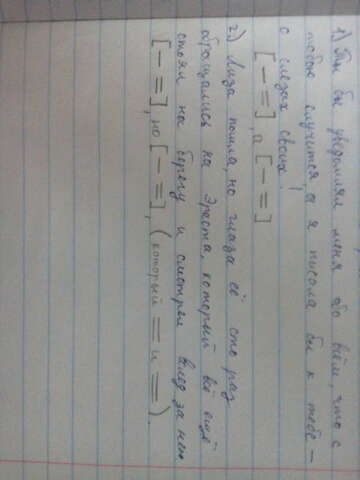 1) Ты бы уведомлял меня обо всём, что с
тобою случится, а я писала бы к тебе –
о слезах своих!
[– =], а [– =]
2) Лиза пошла, но глаза её сто раз
обращались на Эраста, который всё ещё
стоял на берегу и смотрел вслед за нею
[– =], но [– =], (который = и =).